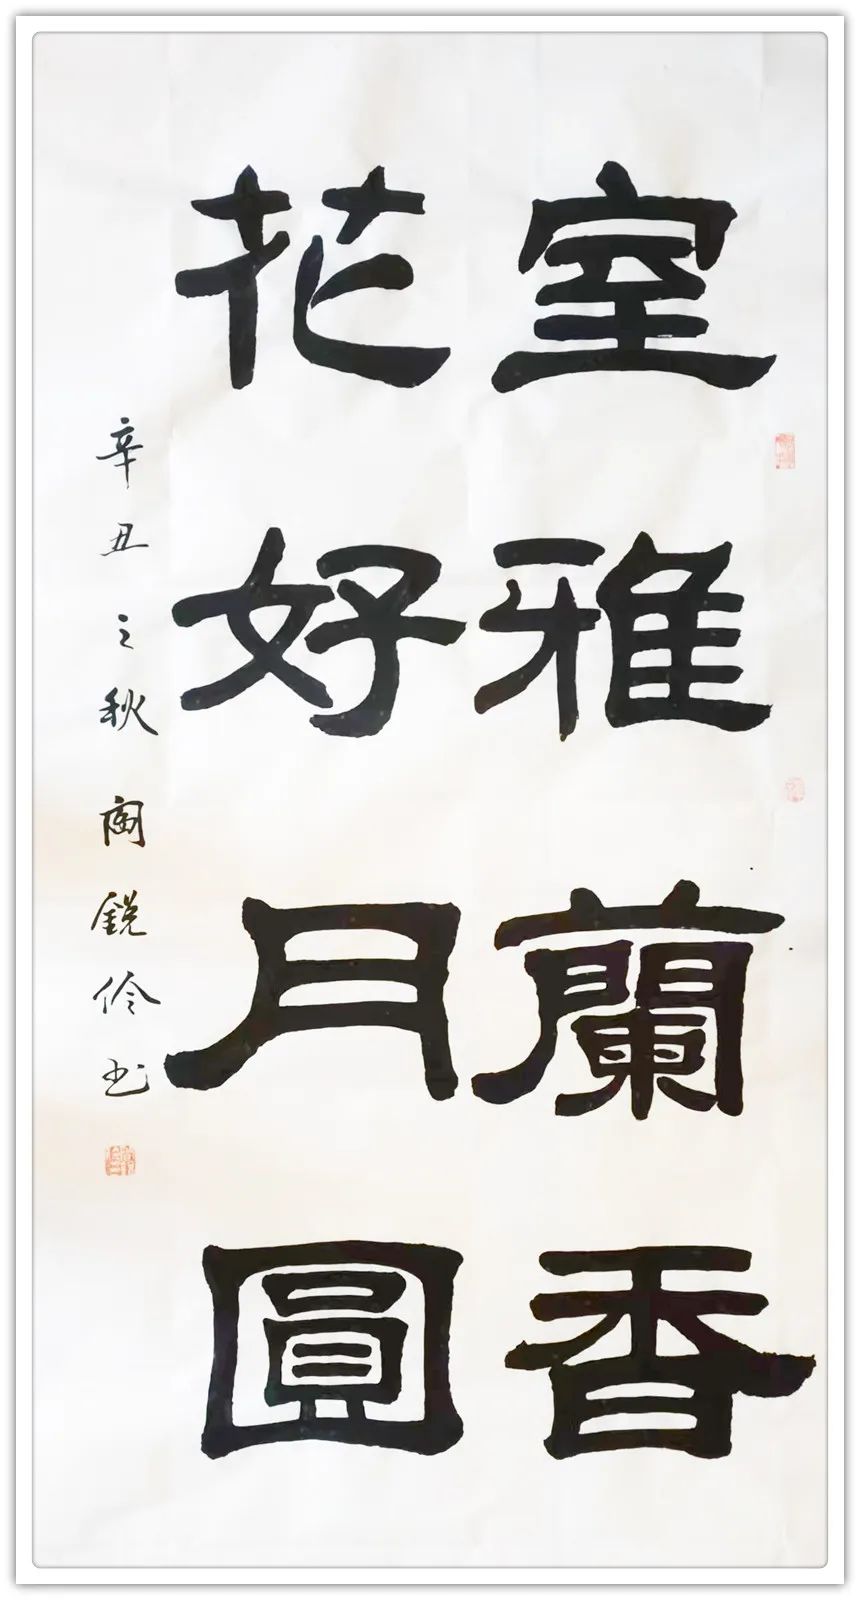 室雅蘭香
花好月圓
辛丑之秋 陶銳伶书